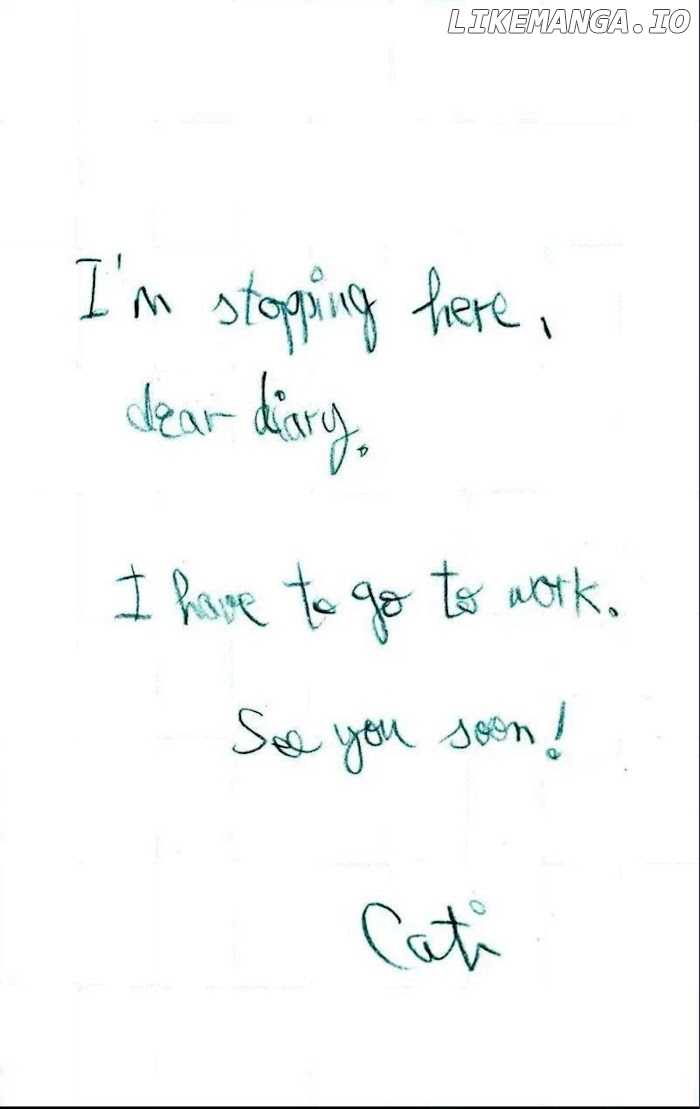 LIKEMANGA.IO
I'm stopping here,
dear diary.
I have to go to work.
See you soon!
Cati